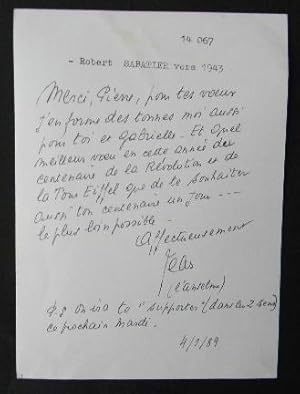 14 067
- Robert SABATIER vers 1943
Merci, Pierre, pour tes vœux
J'en forme des tonnes moi aussi
pour toi et Gabrielle - Et quel
meilleur vœu en cette année du
centenaire de la Révolution et de
la Tour Eiffel que de te souhaiter
aussi ton centenaire un jour ---
le plus loin possible -
Affectueusement
Jean
(l'anselme)
P.S On ira te "supporter" (dans les 2 sens)
ce prochain mardi.
4/1/89